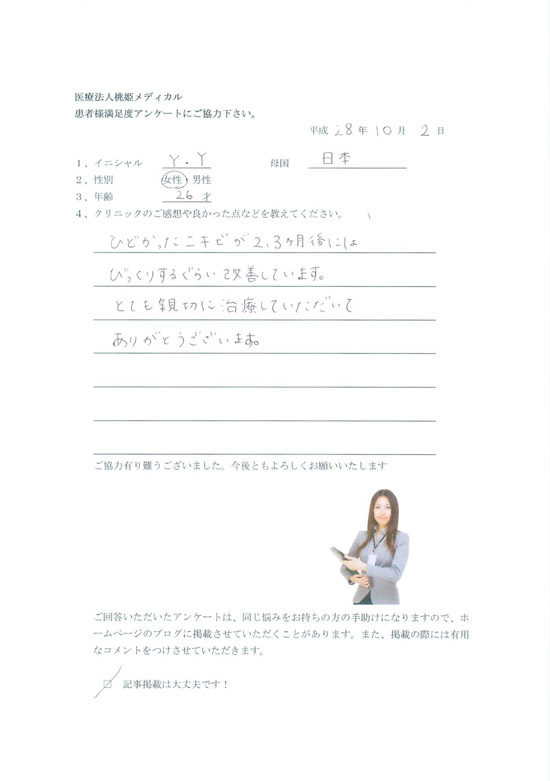 医療法人桃姫メディカル
患者様満足度アンケートにご協力下さい。
平成 28 年 10 月 2 日
1、イニシャル Y.Y 母国 日本
2、性別 女性・男性
3、年齢 26 才
4、クリニックのご感想や良かった点などを教えてください。
ひどかったニキビが2,3ヶ月後には
びっくりするぐらい改善しています。
とても親切に治療していただいて
ありがとうございます。
ご協力有り難うございました。今後ともよろしくお願いいたします
ご回答いただいたアンケートは、同じ悩みをお持ちの方の手助けになりますので、ホ
ームページのブログに掲載させていただくことがあります。また、掲載の際には有用
なコメントをつけさせていただきます。
□ 記事掲載は大丈夫です！